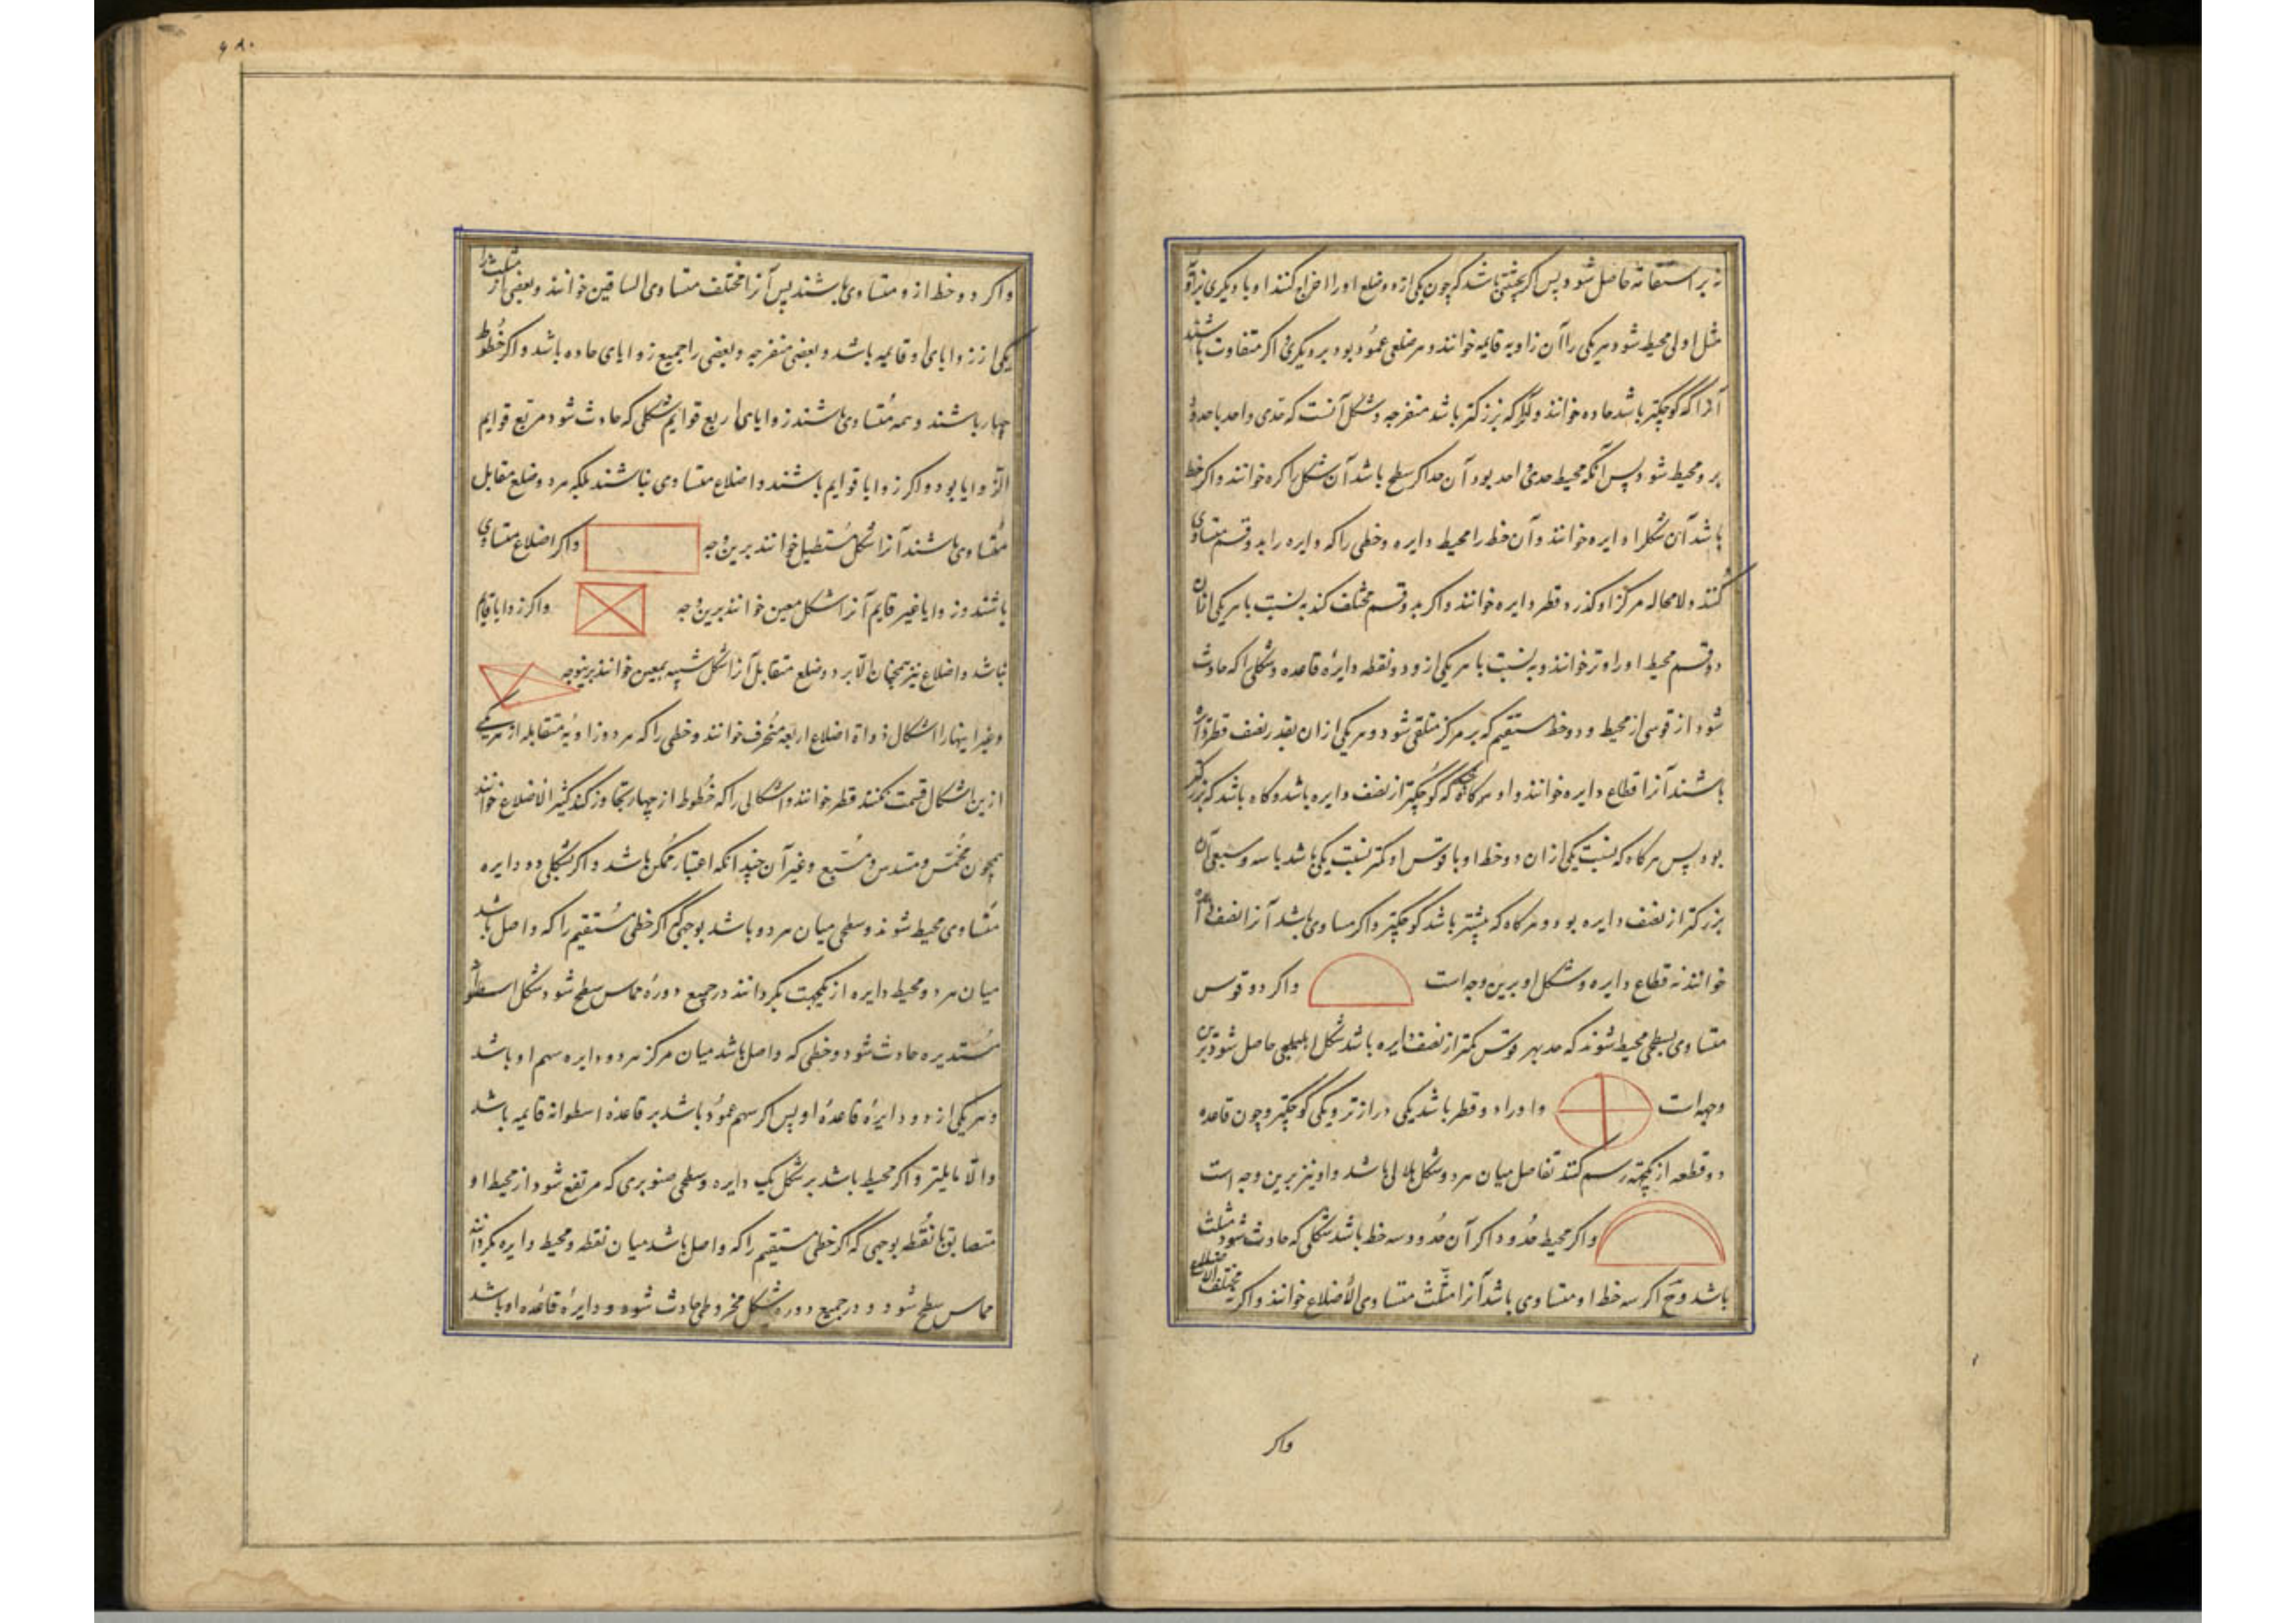 نه بر استقامة حاصل شود پس اگر بحیثیتی باشد که چون یکی از دو ضلع او را اخراج کنند او با دیگری زاویه
مثل اولی محیط شود هر یکی را آن زاویه قایمه خوانند و هر ضلعی عمود بود بر دیگری و اگر متفاوت باشند
آنرا که کوچکتر باشد حاده خوانند و آنرا که بزرکتر باشد منفرجه و شکل آنست که حدی واحد یا حدود
برو محیط شود پس آنکه محیط حدی واحد بود آن حد اگر سطح باشد آن شکل را کره خوانند و اگر خط
باشد آن شکل را دایره خوانند و آن خط را محیط دایره و خطی را که دایره را بدو قسم متساوی
کنند و لامحاله بر مرکز او گذرد قطر دایره خوانند و اگر بدو قسم مختلف کند به نسبت با هر یکی از آن
دو قسم محیط او را وتر خوانند و به نسبت با هر یکی از دو نقطه دایره قاعده و شکلی را که حادث
شود از قوسی از محیط و دو خط مستقیم که بر مرکز متلقی شود و هر یکی از ان بقدر نصف قطر دایره
باشند آنرا قطاع دایره خوانند و او هرگاه که کوچکتر از نصف دایره باشد و گاه باشد که بزرگتر
بود پس هر گاه که نسبت یکی از ان دو خط او با قوس او کمتر نسبت یکی باشد با سه و سبعی آن
بزرکتر از نصف دایره بود و هر گاه که بیشتر باشد کوچکتر و اگر مساوی باشد آنرا نصف دایره
خوانند نه قطاع دایره و شکل او برین وجه است واگر دو قوس
متساوی بسطحی محیط شوند که حد بهر قوس کمتر از نصف دایره باشد شکل اهلیلجی حاصل شود برین
وجهه است و او را دو قطر باشد یکی درازتر و یکی کوچکتر و چون قاعده
دو قطعه از یکجهة رسم کنند تفاضل میان هر دو شکل هلالی باشد و او نیز برین وجه است
و اگر محیط حدود و اگر آن حدود سه خط باشد شکلی که حادث شود مثلث
باشد وح اگر سه خط او متساوی باشد آنرا مثلث متساوی الاضلاع خوانند و اگر مختلف الاضلاع
واگر
واگر دو خط ازو متساوی باشند پس آنرا مختلف متساوی الساقین خوانند و بعضی از مثلث را
یکی از زوایای او قایمه باشد و بعضی منفرجه و بعضی را جمیع زوایای حاده باشد و اگر خطوط
چهار باشند و همه متساوی باشند زوایای اربع قوایم شکلی که حادث شود مربع قوایم
الزوایا بود و اگر زوایا قوایم باشند و اضلاع متساوی نباشند بلکه هر دو ضلع مقابل
متساوی باشند آنرا شکل مستطیل خوانند برین وجه و اگر اضلاع متساوی
باشند و زوایا غیر قایم آنرا شکل معین خوانند برین وجه و اگر زوایا قایم
نباشد و اضلاع نیز همچنان الا بر دو ضلع متقابل آنرا شکل شبیه بمعین خوانند برینوجه
و غیر اینها را اشکال ذواة اضلاع اربعه منحرف خوانند و خطی را که هر دو زاویه متقابله از هر یکی
ازین اشکال قسمت کنند قطر خوانند و اشکالی را که خطوط از چهار تجاوز کند کثیر الاضلاع خوانند
همچون مخمس و مسدس و مسبع و غیر آن چندانکه اعتبار ممکن باشد و اگر بشکلی دو دایره
متساوی محیط شوند و سطحی میان هر دو باشد بوجهی که اگر خطی مستقیم را که واصل باشد
میان هر دو محیط دایره از یکجهت بگردانند در جمیع دوره مماس سطح شود شکل اسطوانه
مستدیره حادث شود و خطی که واصل باشد میان مرکز هر دو دایره سهم او باشد
و هر یکی از دو دایره قاعده او پس اگر سهم عمود باشد بر قاعده اسطوانه قایمه باشد
والا مایله و اگر محیط باشد بر شکل یک دایره و سطحی صنوبری که مرتفع شود از محیط او
متضایق تا نقطه بوجهی که اگر خطی مستقیم را که واصل باشد میان نقطه و محیط دایره بگردانند
مماس سطح شود در جمیع دوره شکل مخروطی حادث شود و دایره قاعده او باشد